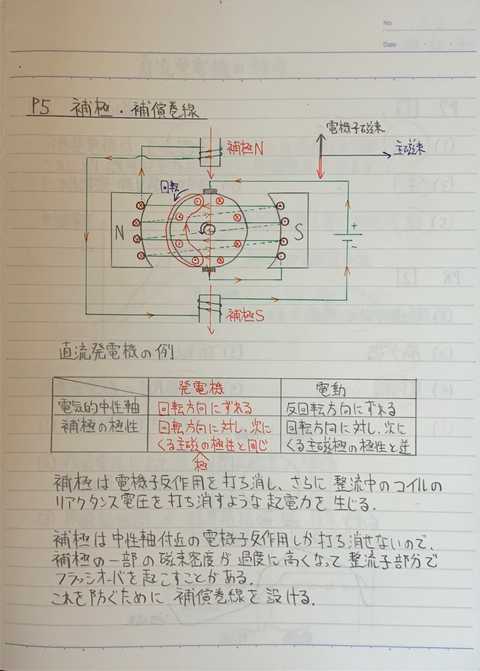 No.
Date
P5 補極・補償巻線
電機子磁束
補極N
主磁束
回転
N
S
+
-
補極S
直流発電機の例
発電機 電動
電気的中性軸 回転方向にずれる 反回転方向にずれる
補極の極性 回転方向に対し、次に 回転方向に対し、次に
くる主磁の極性と同じ くる主磁極の極性と逆
極
補極は電機子反作用を打ち消し、さらに整流中のコイルの
リアクタンス電圧を打ち消すような起電力を生じる.
補極は中性軸付近の電機子反作用しか打ち消せないので、
補極の一部の磁束密度が過度に高くなって整流子部分で
フラッシオーバを起こすことがある.
これを防ぐために補償巻線を設ける.